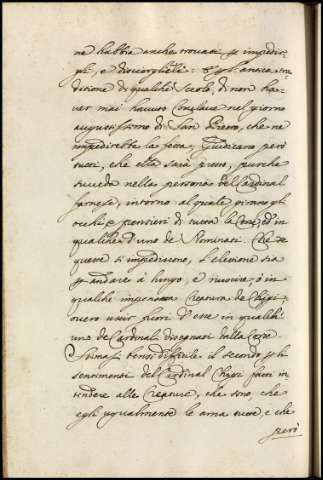 ne habbia anche trovati p impedir-
gli, e disciorglieli. E p l'antica tra-
ditione di qualche Secolo, di non ha-
ver mai havuto Conclave nel giorno
augustissimo di San Pietro, che ne
impedirebbe la festa. Giudicano però
tutti, che ella sarà presto, purche
succeda nella persona del Cardinal
farnese, intorno al quale girano gli
occhi e pensieri di tutta la Corte, ò in
qualched'uno de Nominati. Che se
queste si impedissero, l'elettione sia
p andare à lungo, e riuscire, ò in
qualche impensata Creatura de Chigi,
overo uscir fuori d'esse in qualch'
uno de Cardinali disegnati dalla Corte
Stimasi bensi difficile il secondo p li
sentimenti del Cardinal Chigi fatti in
tendere alle Creature, che sono, che
egli ugualmente le ama tutte, e che
però